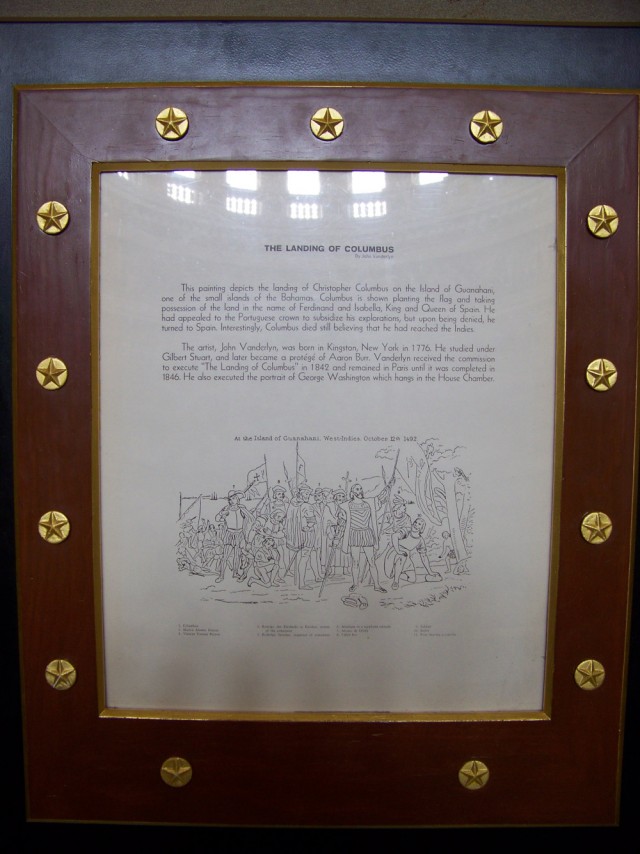 THE LANDING OF COLUMBUS
By John Vanderlyn
This painting depicts the landing of Christopher Columbus on the Island of Guanahani,
one of the small islands of the Bahamas. Columbus is shown planting the flag and taking
possession of the land in the name of Ferdinand and Isabella, King and Queen of Spain. He
had appealed to the Portuguese crown to subsidize his explorations, but upon being denied, he
turned to Spain. Interestingly, Columbus died still believing that he had reached the Indies.
The artist, John Vanderlyn, was born in Kingston, New York in 1776. He studied under
Gilbert Stuart, and later became a protégé of Aaron Burr. Vanderlyn received the commission
to execute "The Landing of Columbus" in 1842 and remained in Paris until it was completed in
1846. He also executed the portrait of George Washington which hangs in the House Chamber.
At the Island of Guanahani, West Indies, October 12th 1492